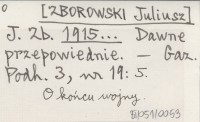 [ZBOROWSKI Juliusz]
J. Zb. 1915... Dawne
przepowiednie. — Gaz.
Podh. 3, nr 19: 5.
O końcu wojny.
B/051/0053